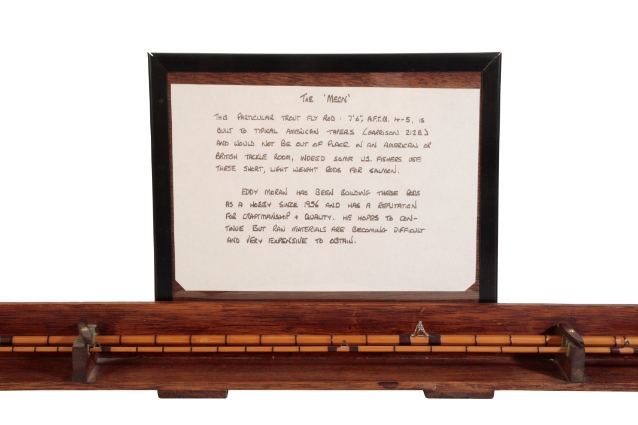 The 'Meon'
This particular trout fly rod : 7'6", A.F.T.M. 4-5, is
built to typical American tapers (Garrison 212E)
and would not be out of place in an American or
British tackle room, indeed some U.S. fishers use
these short, light weight rods for salmon.
Eddy Moran has been building these rods
as a hobby since 1956 and has a reputation
for craftmanship + quality. He hopes to con-
tinue but raw materials are becoming difficult
and very expensive to obtain.